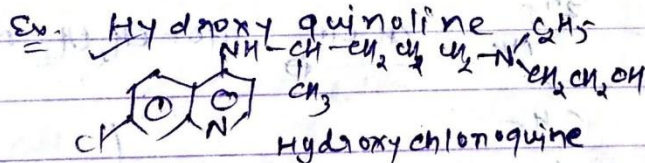 Ex. Hydroxy quinoline
NH-CH-CH2 CH2 CH2-N C2H5
CH3 CH2CH2OH
Cl N
Hydroxychloroquine